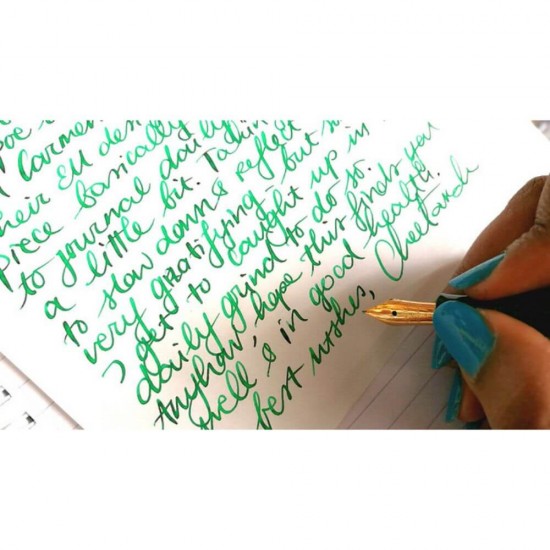 Carmen
their EU des
piece basically
to journal daily
a little bit. Takin
to slow down & reflect
very gratifying but so
I get to caught up in
daily grind to do so.
Anyhow, hope this finds you
well & in good health.
best wishes, Cheetarah